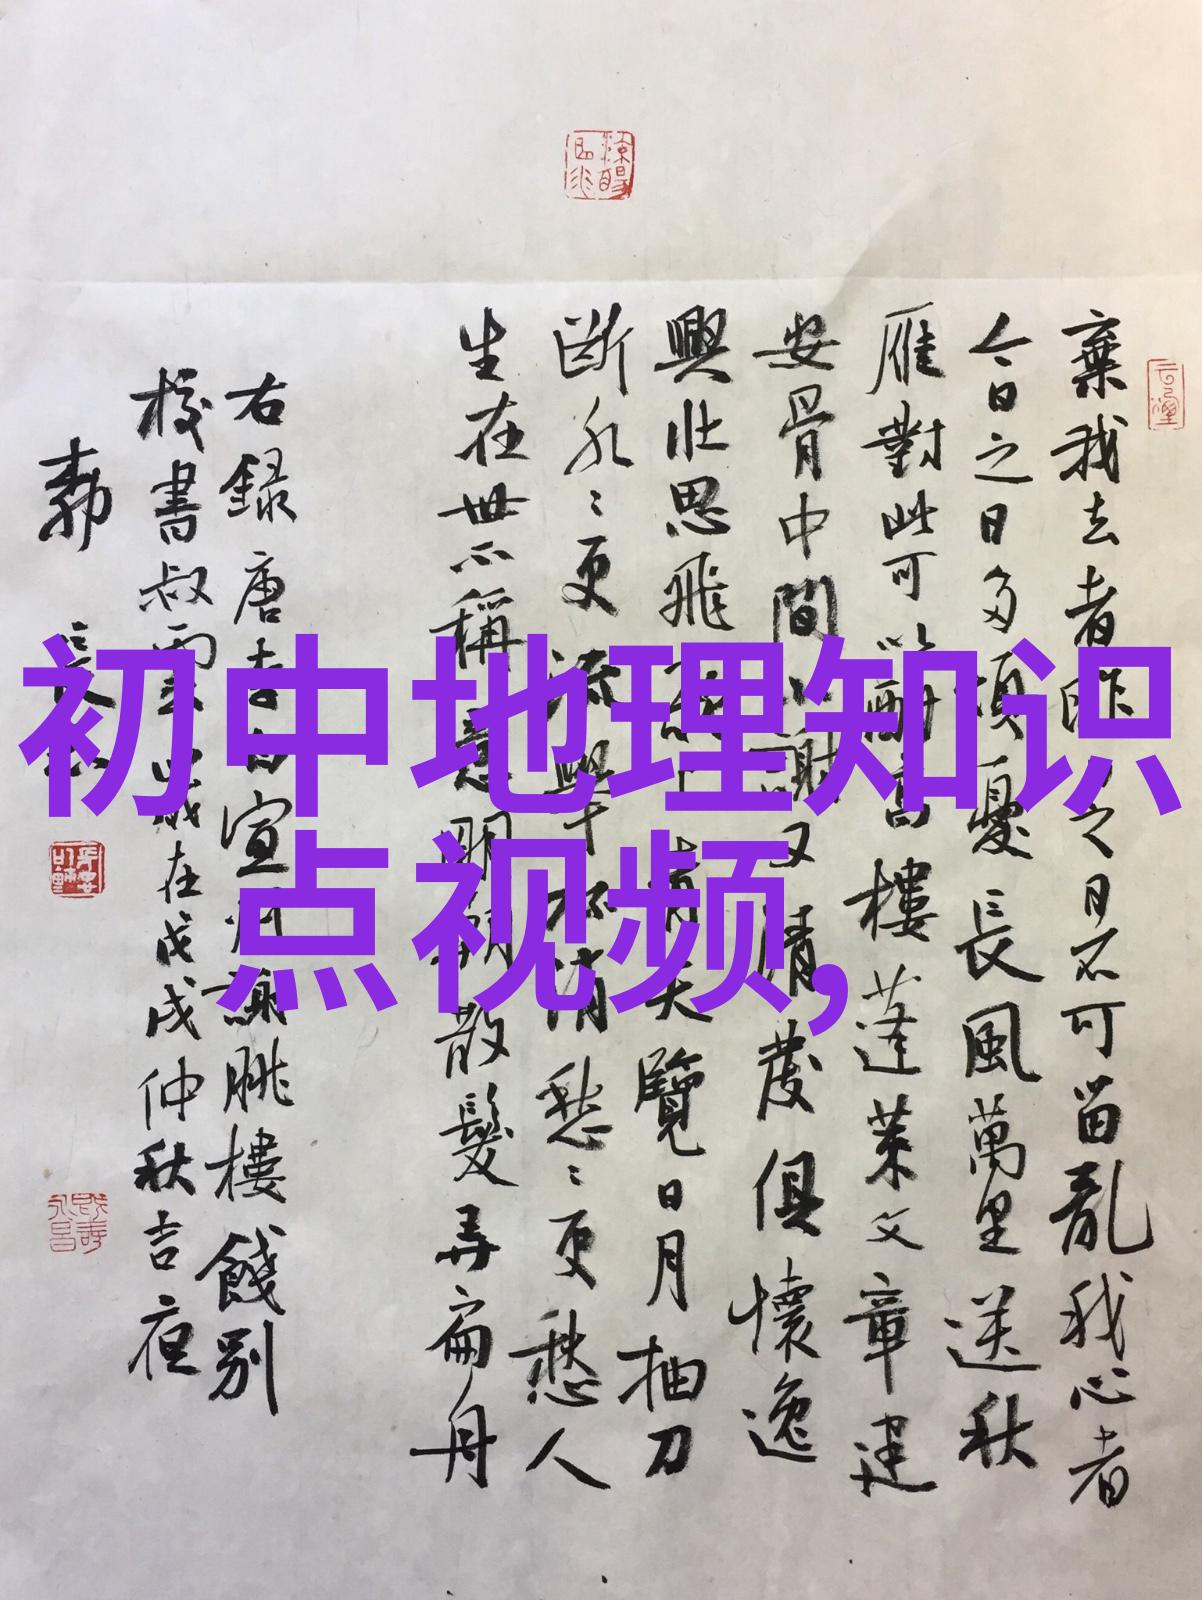 棄我去者昨日之日不可留亂我心者
今日之日多煩憂長風萬里送秋
雁對此可以酣高樓蓬萊文章建
安骨中間小謝又清發俱懷逸
興壯思飛欲上青天覽日月抽刀
斷水〻更流舉杯消愁〻更愁人
生在世不稱意明朝散髮弄扁舟
右録唐李白宣州謝朓樓餞別
校書叔雲歲在戊戌仲秋吉夜
初中地理知识
点视频,